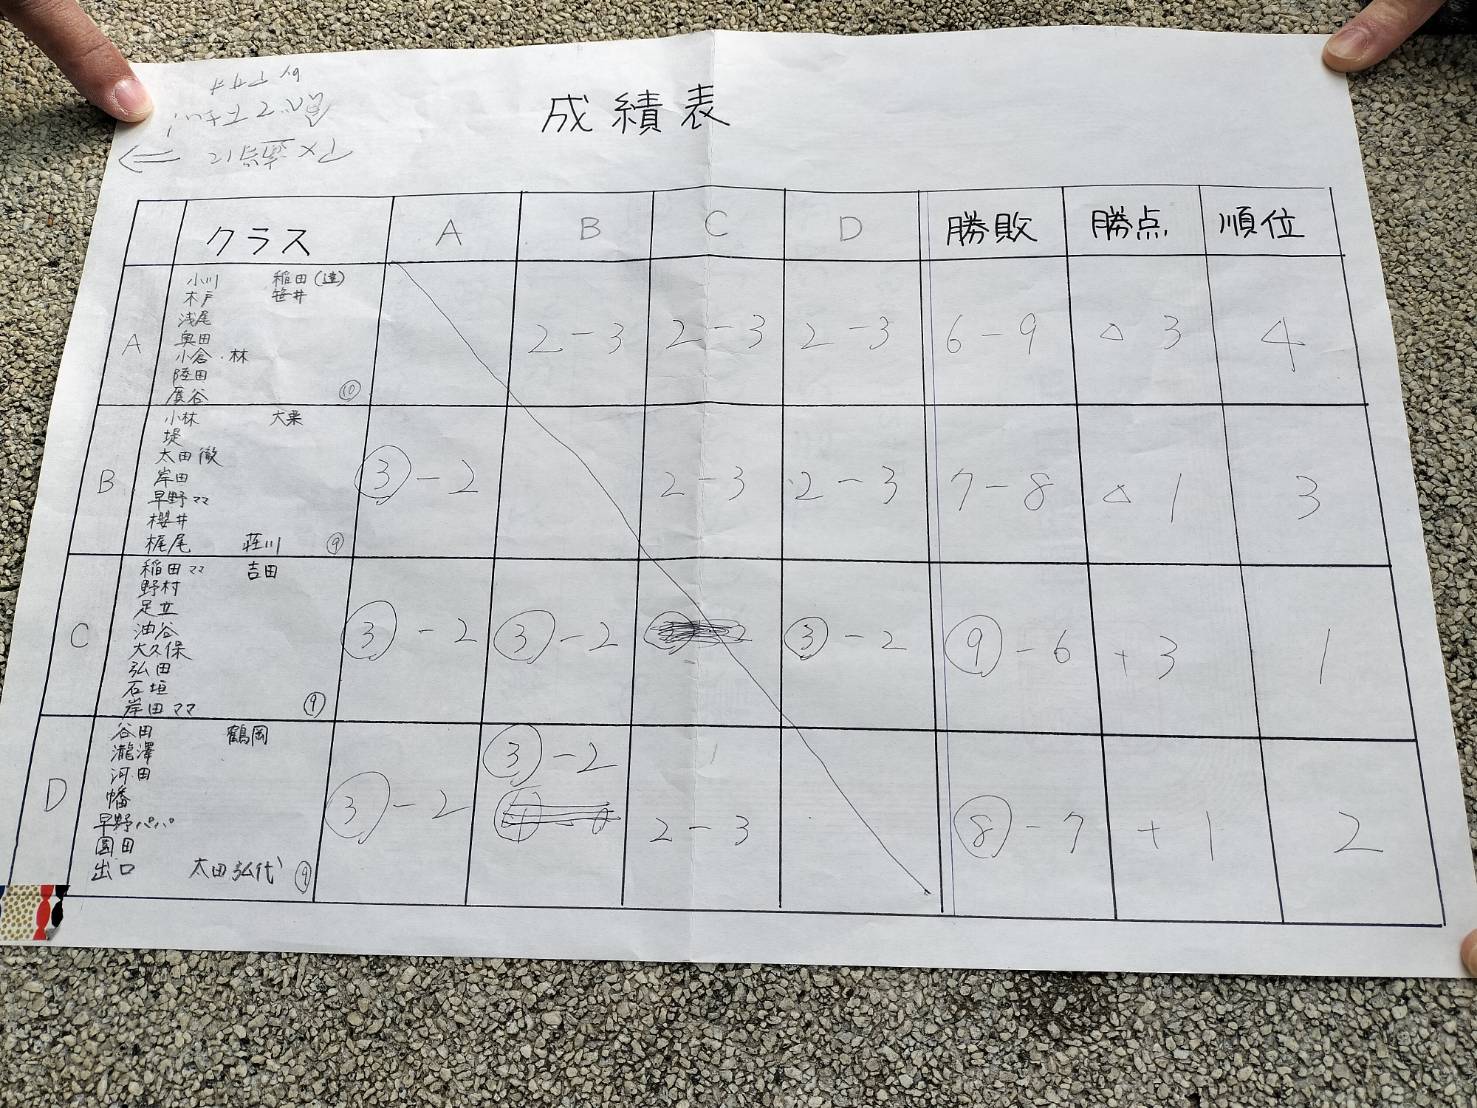 成績表
クラス A B C D 勝敗 勝点 順位
A
小川 稲田(達)
木戸 笹井
浅尾
奥田
小倉・林
陸田
廣谷 ⑩
2-3 2-3 2-3 6-9 △3 4
B
小林 大栗
堤
太田徹
岸田
早野ママ
櫻井
梶尾 荘川 ⑨
③-2 2-3 2-3 7-8 △1 3
C
稲田ママ 吉田
野村
足立
油谷
大久保
弘田
石垣
岸田ママ ⑨
③-2 ③-2 ③-2 ⑨-6 +3 1
D
谷田 鶴岡
瀧澤
河田
幡
早野パパ
園田
出口 太田弘代 ⑨
③-2 ③-2 2-3 ⑧-7 +1 2